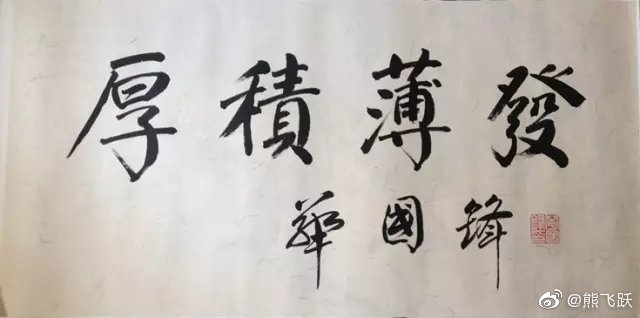 厚積薄發
華國鋒
@熊飞跃